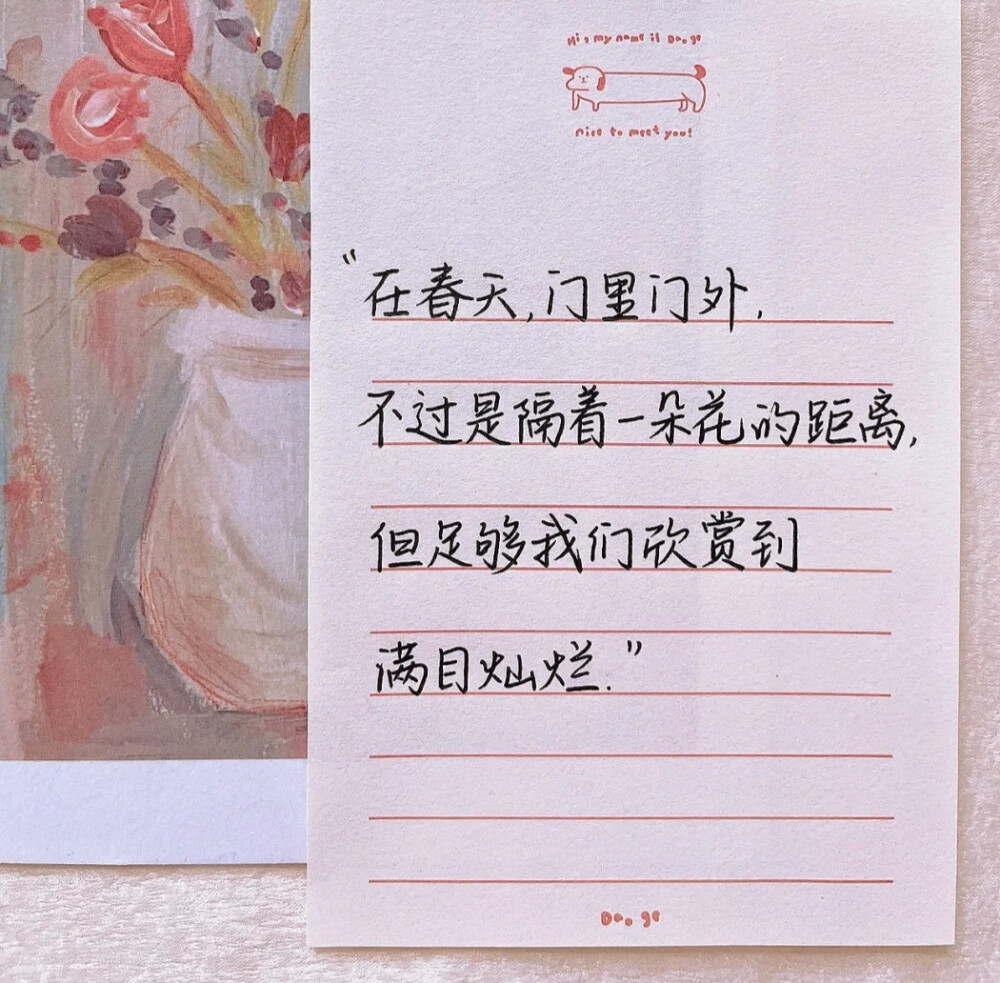 Hi, my name is Doo.ge
Nice to meet you!
“在春天,门里门外,
不过是隔着一朵花的距离,
但足够我们欣赏到
满目灿烂.”
Doo.ge